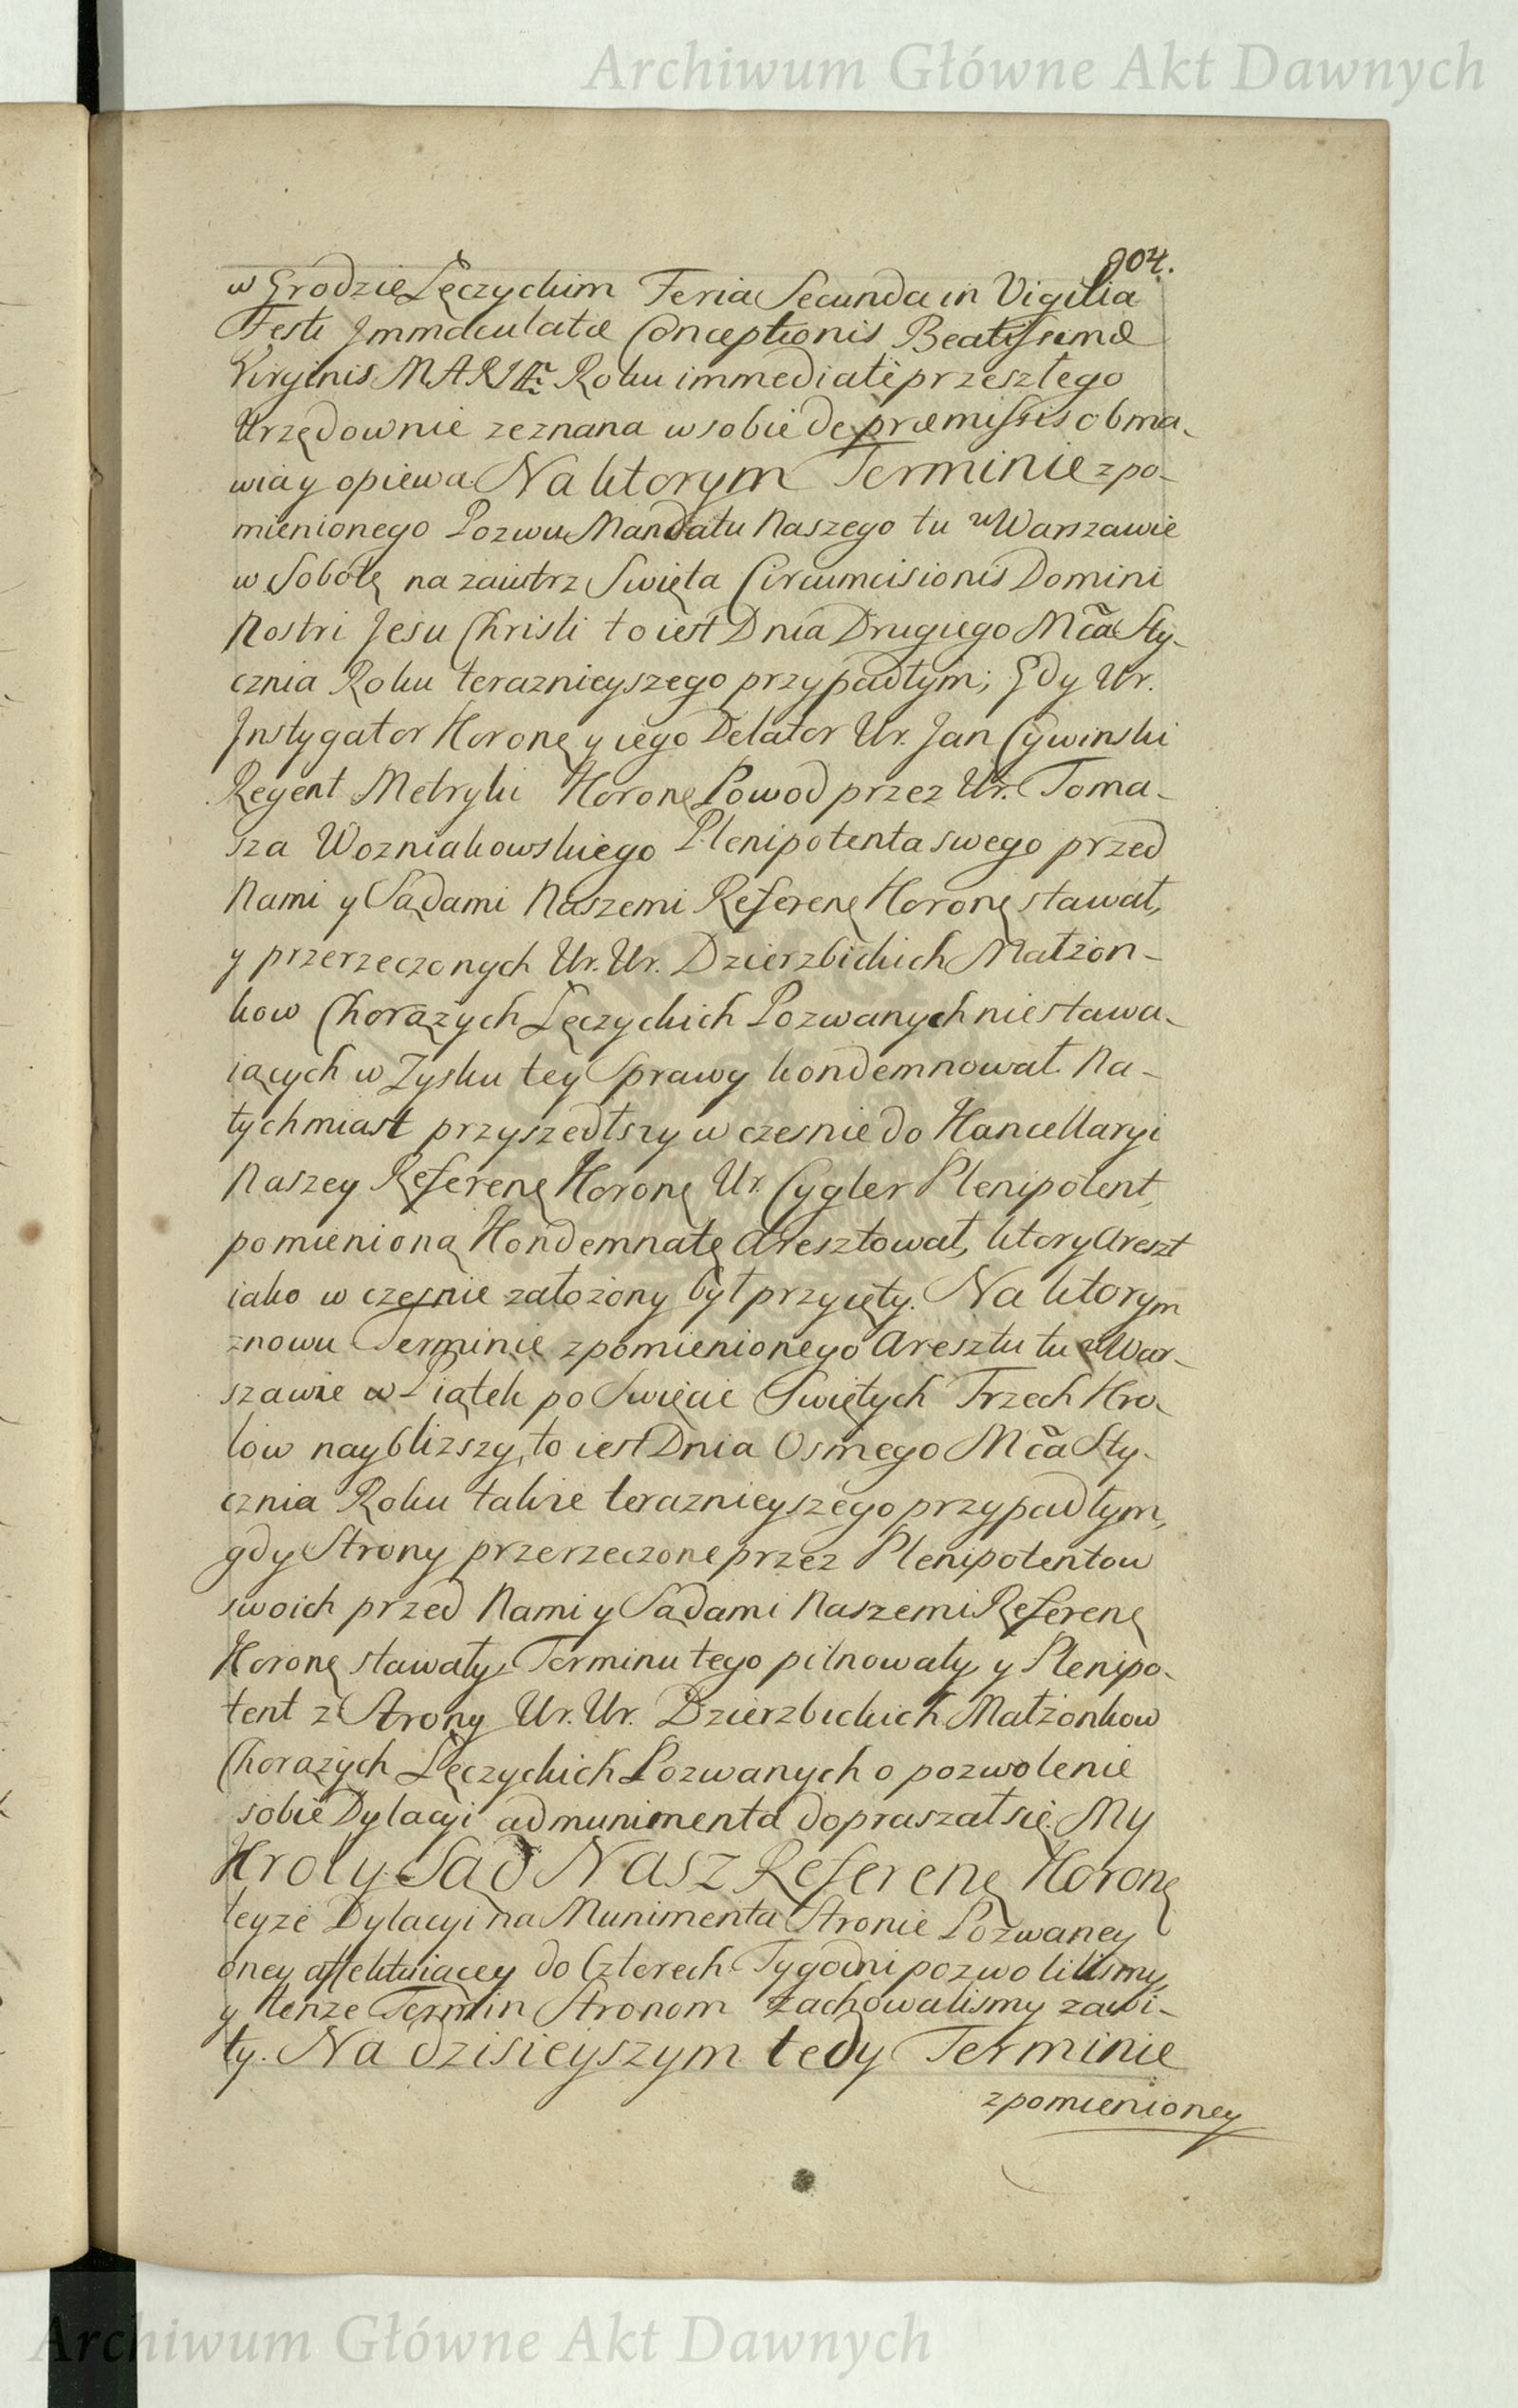 Archiwum Główne Akt Dawnych
904.
w Grodzie Łęczyckim Feria Secunda in Vigilia
Festi Immaculatæ Conceptionis Beatissimæ
Virginis MARIÆ Roku immediatè przeszłego
Urzędownie zeznana w sobie de præmissis obma-
wia y opiewa. Na ktorym Terminie zpo-
mienionego Pozwu Mandatu Naszego tu w Warszawie
w Sobotę na zaiutrz Swięta Circumcisionis Domini
Nostri Jesu Christi to iest Dnia Drugiego Mc̃a Sty-
cznia Roku teraznieyszego przypadłym; Gdy Ur.
Instygator Koronę y iego Delator Ur. Jan Cywinski
Regent Metryki Koronę Powod przez Ur. Toma-
sza Wozniakowskiego Plenipotenta swego przed
Nami y Sądami Naszemi Referenę Koronę stawał,
y przerzeczonych Ur. Ur. Dzierzbickich Małżon-
kow Chorążych Łęczyckich Pozwanych niestawa-
iących w Zysku tey Sprawy kondemnował. Na-
tychmiast przyszedłszy w czesnie do Kancellaryi
Naszey Referenę Koronę Ur. Cygler Plenipotent,
pomienioną Kondemnatę aresztował, ktory areszt
iako w czesnie założony był przyięty. Na ktorym
znowu Terminie zpomienionego Aresztu tu w War-
szawie w Piątek po Swięcie Swiętych Trzech Kro-
low naybliższy, to iest Dnia Osmego Mc̃a Sty-
cznia Roku także teraznieyszego przypadłym,
gdy Strony przerzeczone przez Plenipotentow
swoich przed Nami y Sądami Naszemi Referenę
Koronę stawały, Terminu tego pilnowały, y Plenipo-
tent z Strony Ur. Ur. Dzierzbickich Małżonkow
Chorążych Łęczyckich Pozwanych o pozwolenie
sobie Dylacyi ad munimenta dopraszał się. My
Krol y Sąd Nasz Referenę Koronę
teyże Dylacyi na Munimenta Stronie Pozwaney
oney affektuiącey do Czterech Tygodni pozwolilismy
y tenże Termin Stronom zachowalismy zawi-
ty. Na dzisieyszym tedy Terminie
zpomienioney
Archiwum Główne Akt Dawnych